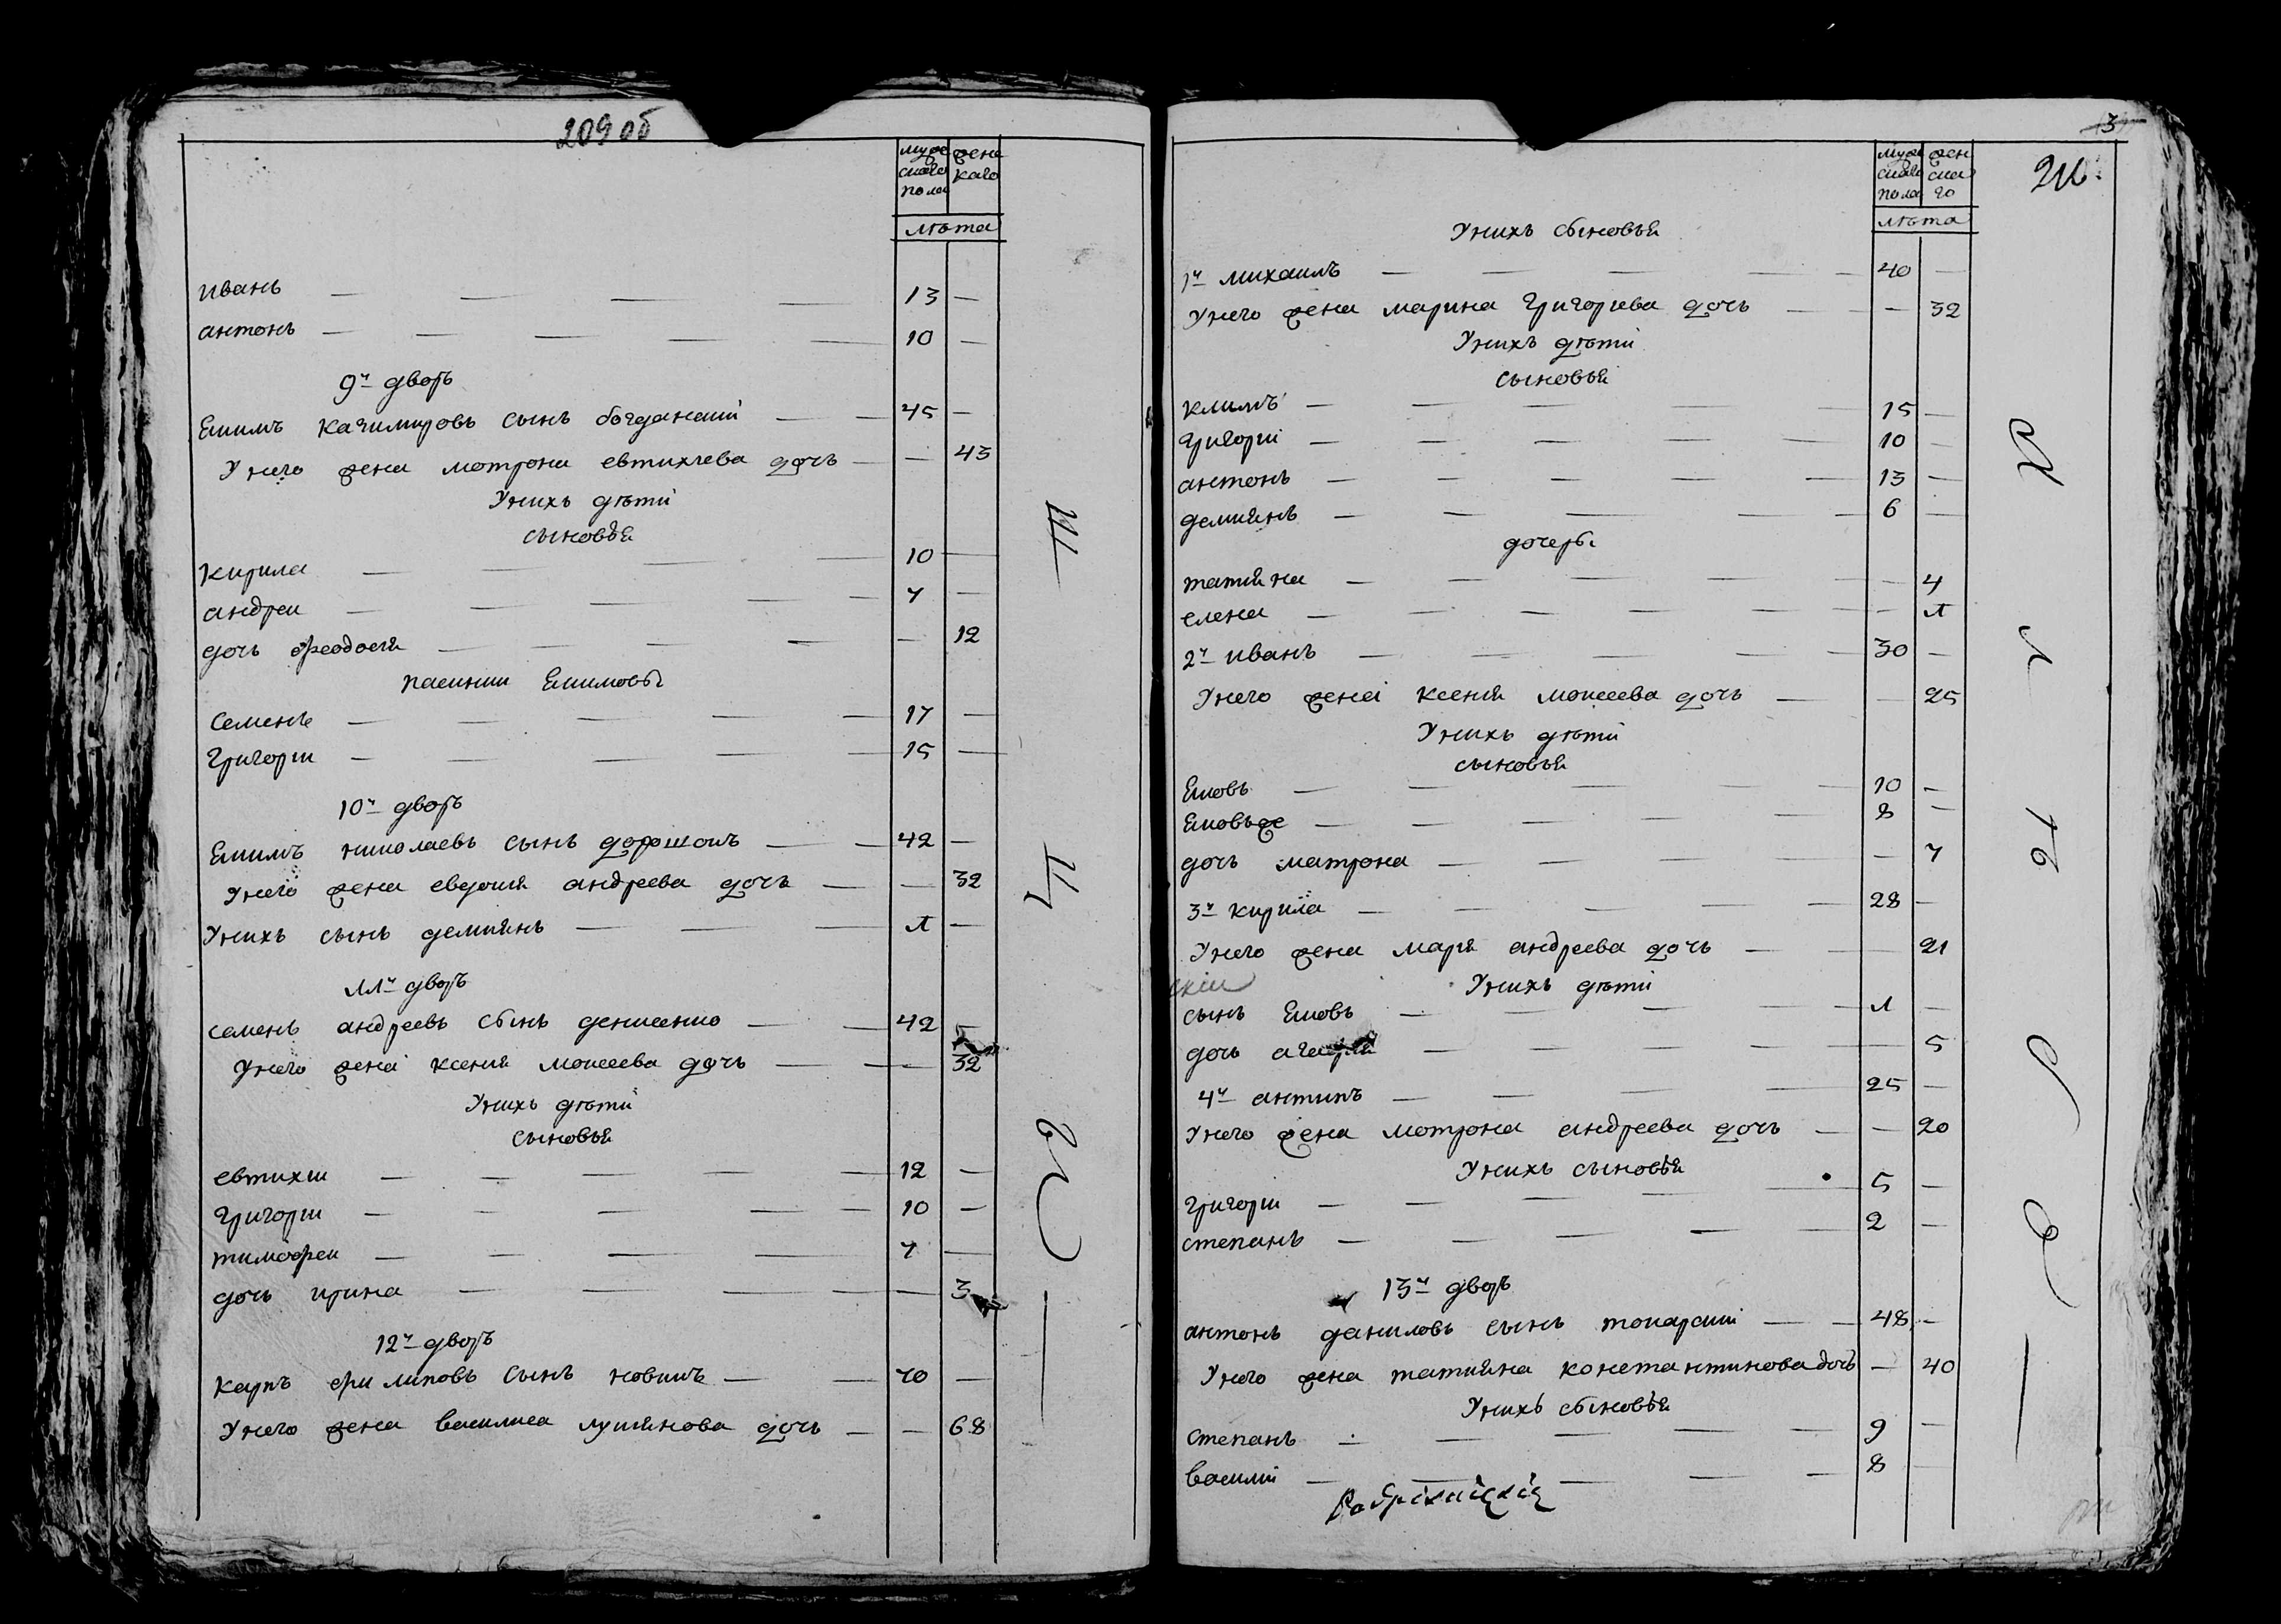 209 об
мужескаго пола женскаго
лѣта
иванъ — 13 —
антонъ — 10 —
9й дворъ
Екимъ казимировъ сынъ богданскии — 45 —
У него жена мотрона евтихиева дочь — 43
У нихъ дѣти
сыновья
кирила — 10 —
андреи — 7 —
дочь феодосия — 12
пасинки Екимовы
семенъ — 17 —
Григории — 15 —
10й дворъ
Екимъ николаевъ сынъ дорошокъ — 42 —
У него жена евдокия андреева дочь — 32
У нихъ сынъ демиянъ — 1 —
11й дворъ
семенъ андреевъ сынъ денисенко — 42 —
У него жена ксения моисеева дочь — 32
У нихъ дѣти
сыновья
евтихии — 12 —
Григории — 10 —
тимофеи — 7 —
дочь ирина — 3
12й дворъ
карпъ филиповъ сынъ новикъ — 70 —
У него жена василиса лукиянова дочь — 68
3
мужескаго пола женскаго
лѣта
У нихъ сыновья
1й михаилъ — 40 —
У него жена марина Григориева дочь — 32
У нихъ дѣти
сыновья
климъ — 15 —
Григории — 10 —
антонъ — 13 —
демиянъ — 6 —
дочеры
татияна — 4
елена — 1
2й иванъ — 30 —
У него жена ксения моисеева дочь — 25
У нихъ дѣти
сыновья
Яковъ — 10 —
Яковъже — 8 —
дочь матрона — 7
3й кирила — 28 —
У него жена мария андреева дочь — 21
У нихъ дѣти
сынъ Яковъ — 1 —
дочь агафия — 5
4й антипъ — 25 —
У него жена мотрона андреева дочь — 20
У нихъ сыновья
Григории — 5 —
степанъ — 2 —
13й дворъ
антонъ даниловъ сынъ токарскии — 48 —
У него жена татияна константинова дочь — 40
У нихъ сыновья
степанъ — 9 —
василии — 8 —